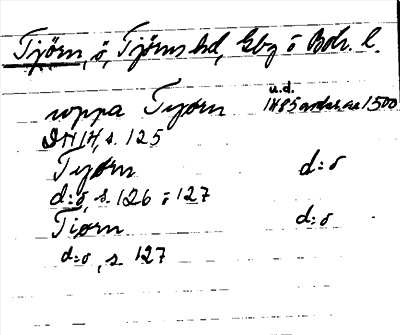 Tjörn, ö, Tjörns hd, Gbg o Boh. l.
u.d.
uppa Tyorn 1485 avskr. ca 1500
DN 14, s. 125
Tyørn d:o
d:o, s. 126 o 127
Tiørn d:o
d:o, s. 127